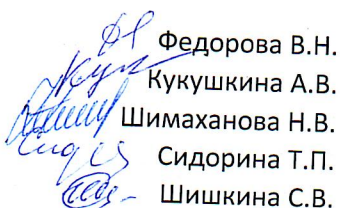 Федорова В.Н.
Кукушкина А.В.
Шимаханова Н.В.
Сидорина Т.П.
Шишкина С.В.